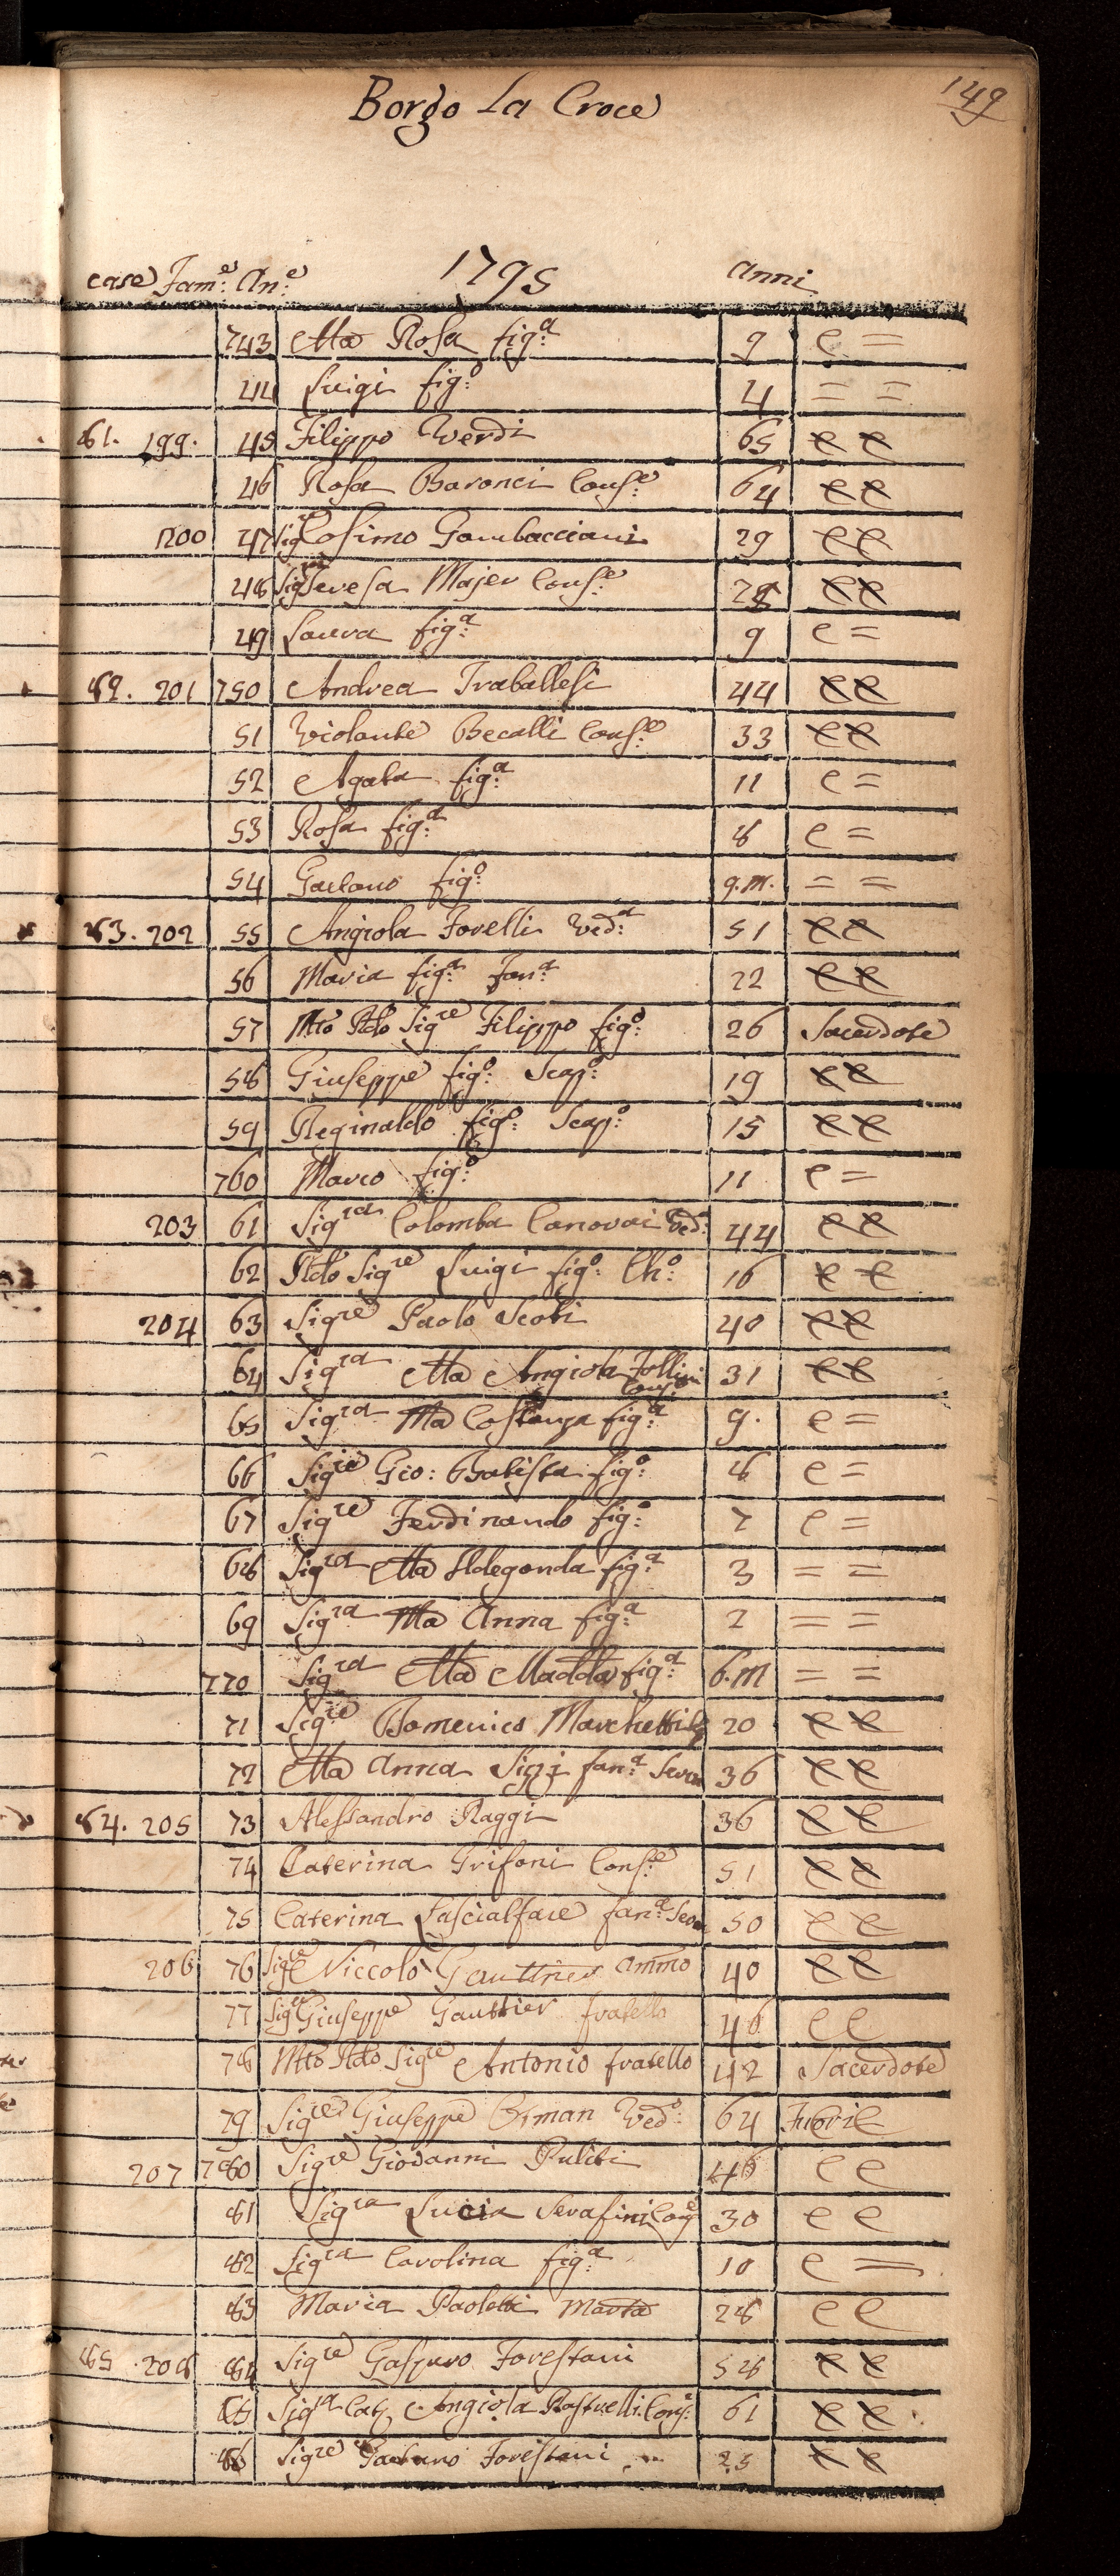 Borgo La Croce
149
case Fam.e An.e 1795 Anni
743 Ma Rosa fig.a 9 e =
44 Luigi fig.o 4 = =
81. 199. 45 Filippo Verdi 65 e e
46 Rosa Baronci Cons.e 64 e e
200 47 Sig.re Cosimo Gambacciani 29 e e
48 Sig.ra Teresa Majer Cons.e 28 e e
49 Laura fig.a 9 e =
82. 201 750 Andrea Traballesi 44 e e
51 Violante Becalli Cons.e 33 e e
52 Agata fig.a 11 e =
53 Rosa fig.a 8 e =
54 Gaetano fig.o 9.m. = =
83. 202 55 Angiola Forelli Ved.a 51 e e
56 Maria fig.a Fan.a 22 e e
57 Mto Rdo Sig.re Filippo fig.o 26 Sacerdote
58 Giuseppe fig.o Scap.o 19 e e
59 Reginaldo fig.o Scap.o 15 e e
760 Marco fig.o 11 e =
203 61 Sig.ra Colomba Canovai Ved.a 44 e e
62 Rdo Sig.re Luigi fig.o Ch.o 16 e e
204 63 Sig.re Paolo Scoti 40 e e
64 Sig.ra Ma Angiola Follini Cons.e 31 e e
65 Sig.ra Ma Costanza fig.a 9. e =
66 Sig.re Gio: Batista fig.o 8 e =
67 Sig.re Ferdinando fig.o 7 e =
68 Sig.ra Ma Ildegonda fig.a 3 = =
69 Sig.ra Ma Anna fig.a 2 = =
770 Sig.ra Ma Madda fig.a 6.m = =
71 Sig.re Domenico Marchetti 20 e e
72 Ma Anna Sigi fan.a Serva 36 e e
84. 205 73 Alessandro Raggi 36 e e
74 Caterina Grifoni Cons.e 51 e e
75 Caterina Fascialfare fan.a Serva 50 e e
206 76 Sig.re Niccolò Gauttier Ammo 40 e e
77 Sig.re Giuseppe Gauttier fratello 46 e e
78 Mto Rdo Sig.re Antonio fratello 42 Sacerdote
79 Sig.re Giuseppe Orman Ved.o 64
207 780 Sig.re Giovanni Puliti 46 e e
81 Sig.ra Lucia Serafini Cons.e 30 e e
82 Sig.ra Carolina fig.a 10 e =
83 Maria Paoletti 28 e e
85 208 84 Sig.re Gasparo Forestani 58 e e
85 Sig.ra Cat. Angiola Rastrelli Cons.e 61 e e
86 Sig.re Gaetano Forestani 25 e e